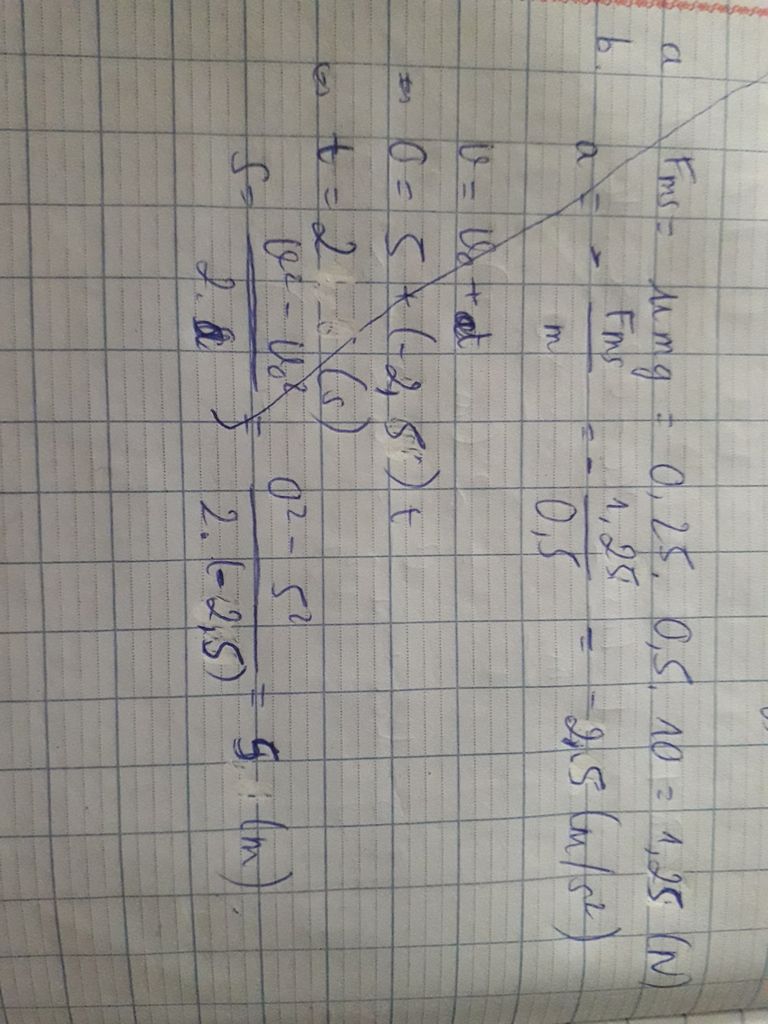 a Fms = μmg = 0,25. 0,5. 10 = 1,25 (N)
b. a = - Fms / m = - 1,25 / 0,5 = -2,5 (m/s²)
v = v₀ + at
⇔ 0 = 5 + (-2,5) t
⇔ t = 2 (s)
S = v² - v₀² / 2.a = 0² - 5² / 2. (-2,5) = 5 (m).